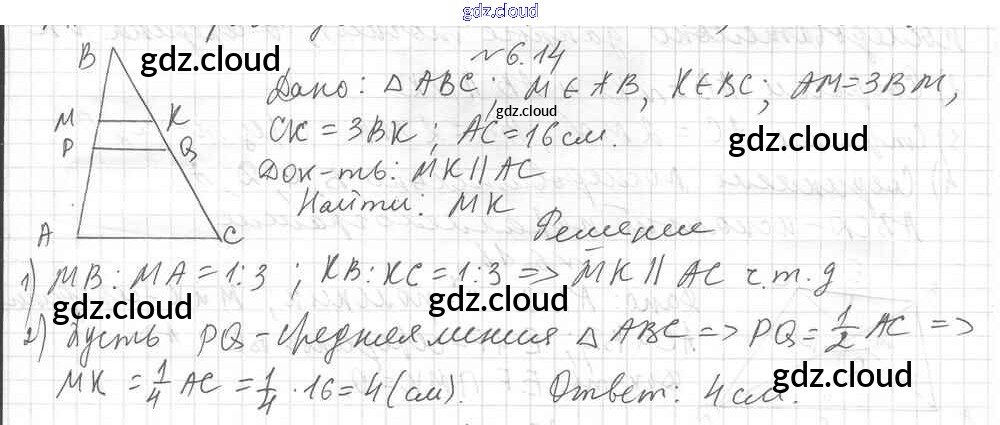 gdz.cloud
№ 6.14
B
gdz.cloud
Дано: △ ABC; M ∈ AB, K ∈ BC; AM = 3BM,
gdz.cloud
M K
CK = 3BK; AC = 16 см.
gdz.cloud
P Q
Док-ть: MK || AC
Найти: MK
A C
Решение
1) MB : MA = 1:3 ; KB : KC = 1:3 => MK || AC ч.т.д
gdz.cloud gdz.cloud
2) Пусть PQ - средняя линия △ ABC => PQ = 1/2 AC =>
MK = 1/4 AC = 1/4 · 16 = 4 (см). Ответ: 4 см.
gdz.cloud